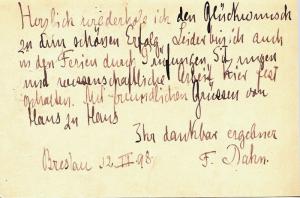 Herzlich wiederhole ich den Glückwunsch
zu dem schönen Erfolg. Leider bin ich auch
in den Ferien durch
und wissenschaftliche Arbeit hier fest
gehalten. Mit freundlichen Grüssen von
Haus zu Haus
Ihr dankbar ergebner
Breslau 12 98. F. Dahn.